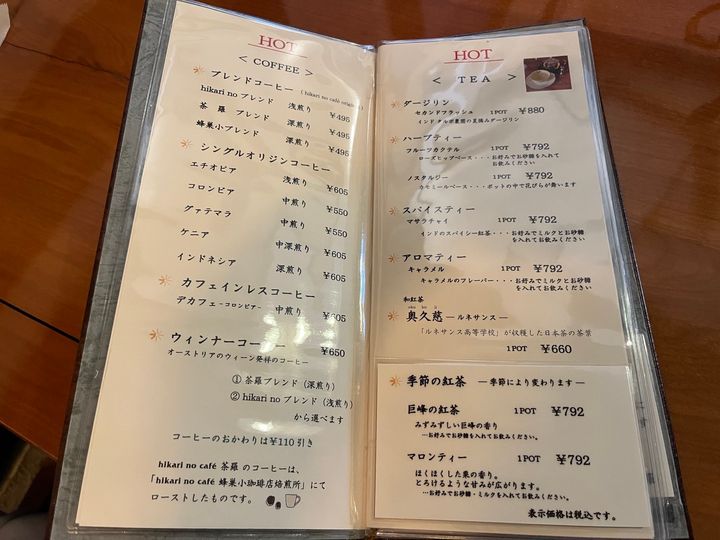 HOT
< COFFEE >
ブレンドコーヒー
hikari no ブレンド 浅煎り ¥495
茶羅 ブレンド 深煎り ¥495
蜂巣小ブレンド 深煎り ¥495
シングルオリジンコーヒー
エチオピア 浅煎り ¥605
コロンビア 中煎り ¥550
グァテマラ 中煎り ¥550
ケニア 中深煎り ¥605
インドネシア 深煎り ¥605
カフェインレスコーヒー
デカフェ -コロンビア- 中煎り ¥605
ウィンナーコーヒー ¥650
オーストリアのウィーン発祥のコーヒー
① 茶羅ブレンド(深煎り)
② hikari no ブレンド(浅煎り)
から選べます
コーヒーのおかわりは¥110引き
hikari no café 茶羅 のコーヒーは、
「hikari no café 蜂巣小珈琲店焙煎所」にて
ローストしたものです。
HOT
< TEA >
ダージリン
セカンドフラッシュ 1POT ¥880
ハーブティー
フルーツカクテル 1POT ¥792
ローズヒップベース・・・お好みでお砂糖を入れて
お飲みください
ノスタルジー 1POT ¥792
カモミールベース・・・ポットの中で花びらが舞います
スパイスティー
マサラチャイ 1POT ¥792
インドのスパイシー紅茶・・・お好みでミルクとお砂糖
を入れてお飲みください
アロマティー
キャラメル 1POT ¥792
キャラメルのフレーバー・・・お好みでミルクとお砂糖
を入れてお飲みください
和紅茶
奥久慈 ―ルネサンス―
「ルネサンス高等学校」が収穫した日本茶の茶葉
1POT ¥660
季節の紅茶 ―季節により変わります―
巨峰の紅茶 1POT ¥792
みずみずしい巨峰の香り
…お好みでお砂糖を入れてお飲みください。
マロンティー 1POT ¥792
ほくほくした栗の香り。
とろけるような甘みが広がります。
…お好みでお砂糖・ミルクを入れてお飲みください。
表示価格は税込です。